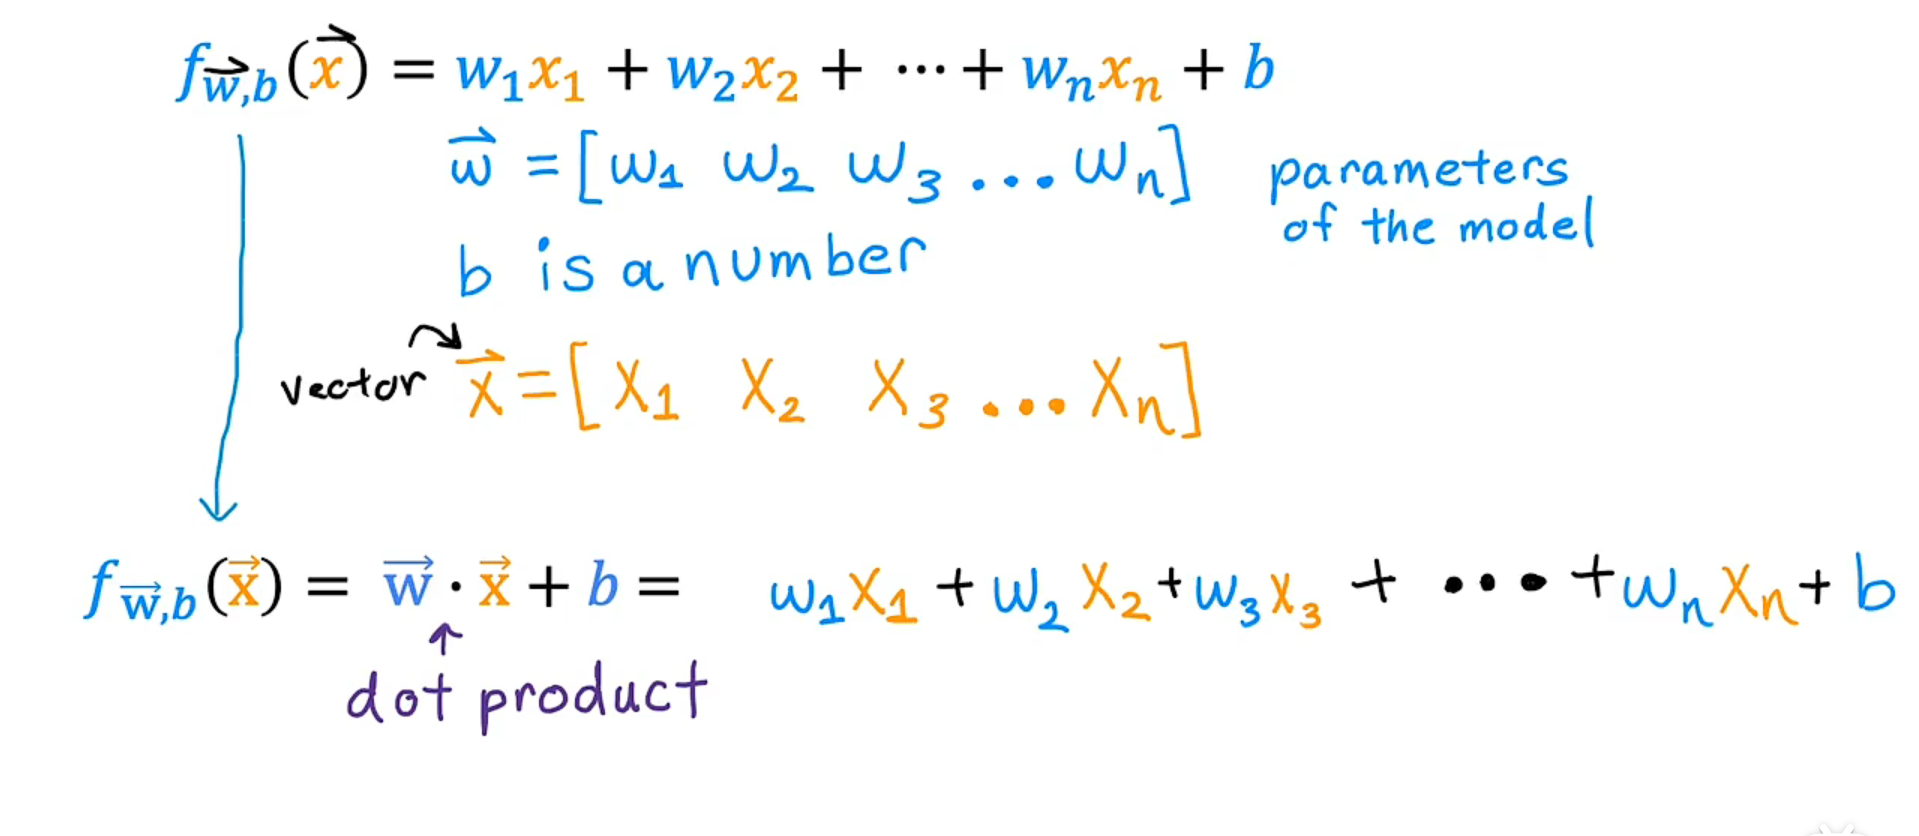 f_{\vec{w},b}(\vec{x}) = w_1x_1 + w_2x_2 + ⋯ + w_nx_n + b
\vec{w} = [w_1 w_2 w_3 ... w_n] parameters
of the model
b is a number
vector \vec{x} = [x_1 x_2 x_3 ... x_n]
f_{\vec{w},b}(\vec{x}) = \vec{w} · \vec{x} + b = w_1x_1 + w_2x_2 + w_3x_3 + ... + w_nx_n + b
dot product